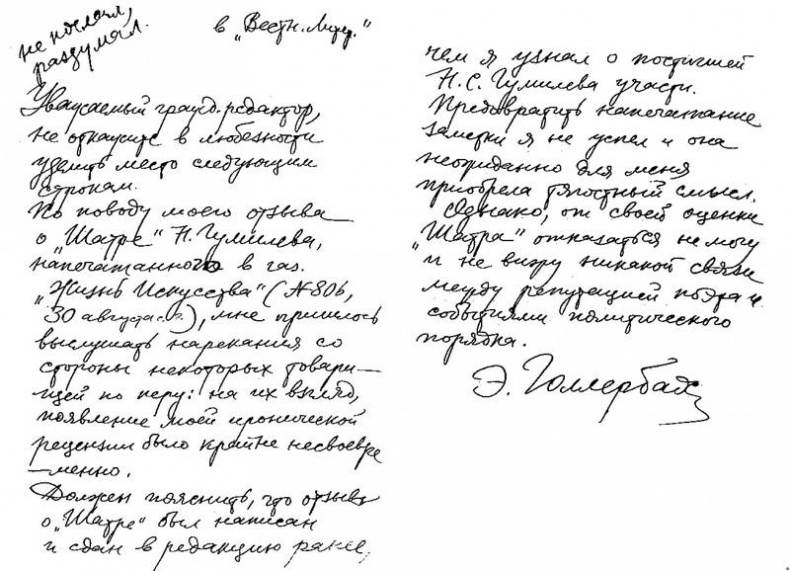 не послал,
раздумал.
в „Вестн. Литер."
Уважаемый гражд. редактор,
не откажите в любезности
уделить место следующим
строкам.
По поводу моего отзыва
о „Шатре" Н. Гумилева,
напечатанного в газ.
„Жизнь Искусства" (№ 806,
30 августа с.г.), мне пришлось
выслушать нарекания со
стороны некоторых товари-
щей по перу: на их взгляд,
появление моей иронической
рецензии было крайне несвоевре
—менно.
Должен пояснить, что отзыв
о „Шатре" был написан
и сдан в редакцию ранее,
чем я узнал о постигшей
Н.С. Гумилева участи.
Предотвратить напечатание
заметки я не успел и она
неожиданно для меня
приобрела тягостный смысл.
Однако, от своей оценки
„Шатра" отказаться не могу
и не вижу никакой связи
между репутацией поэта и
событиями политического
порядка.
Э. Голлербах